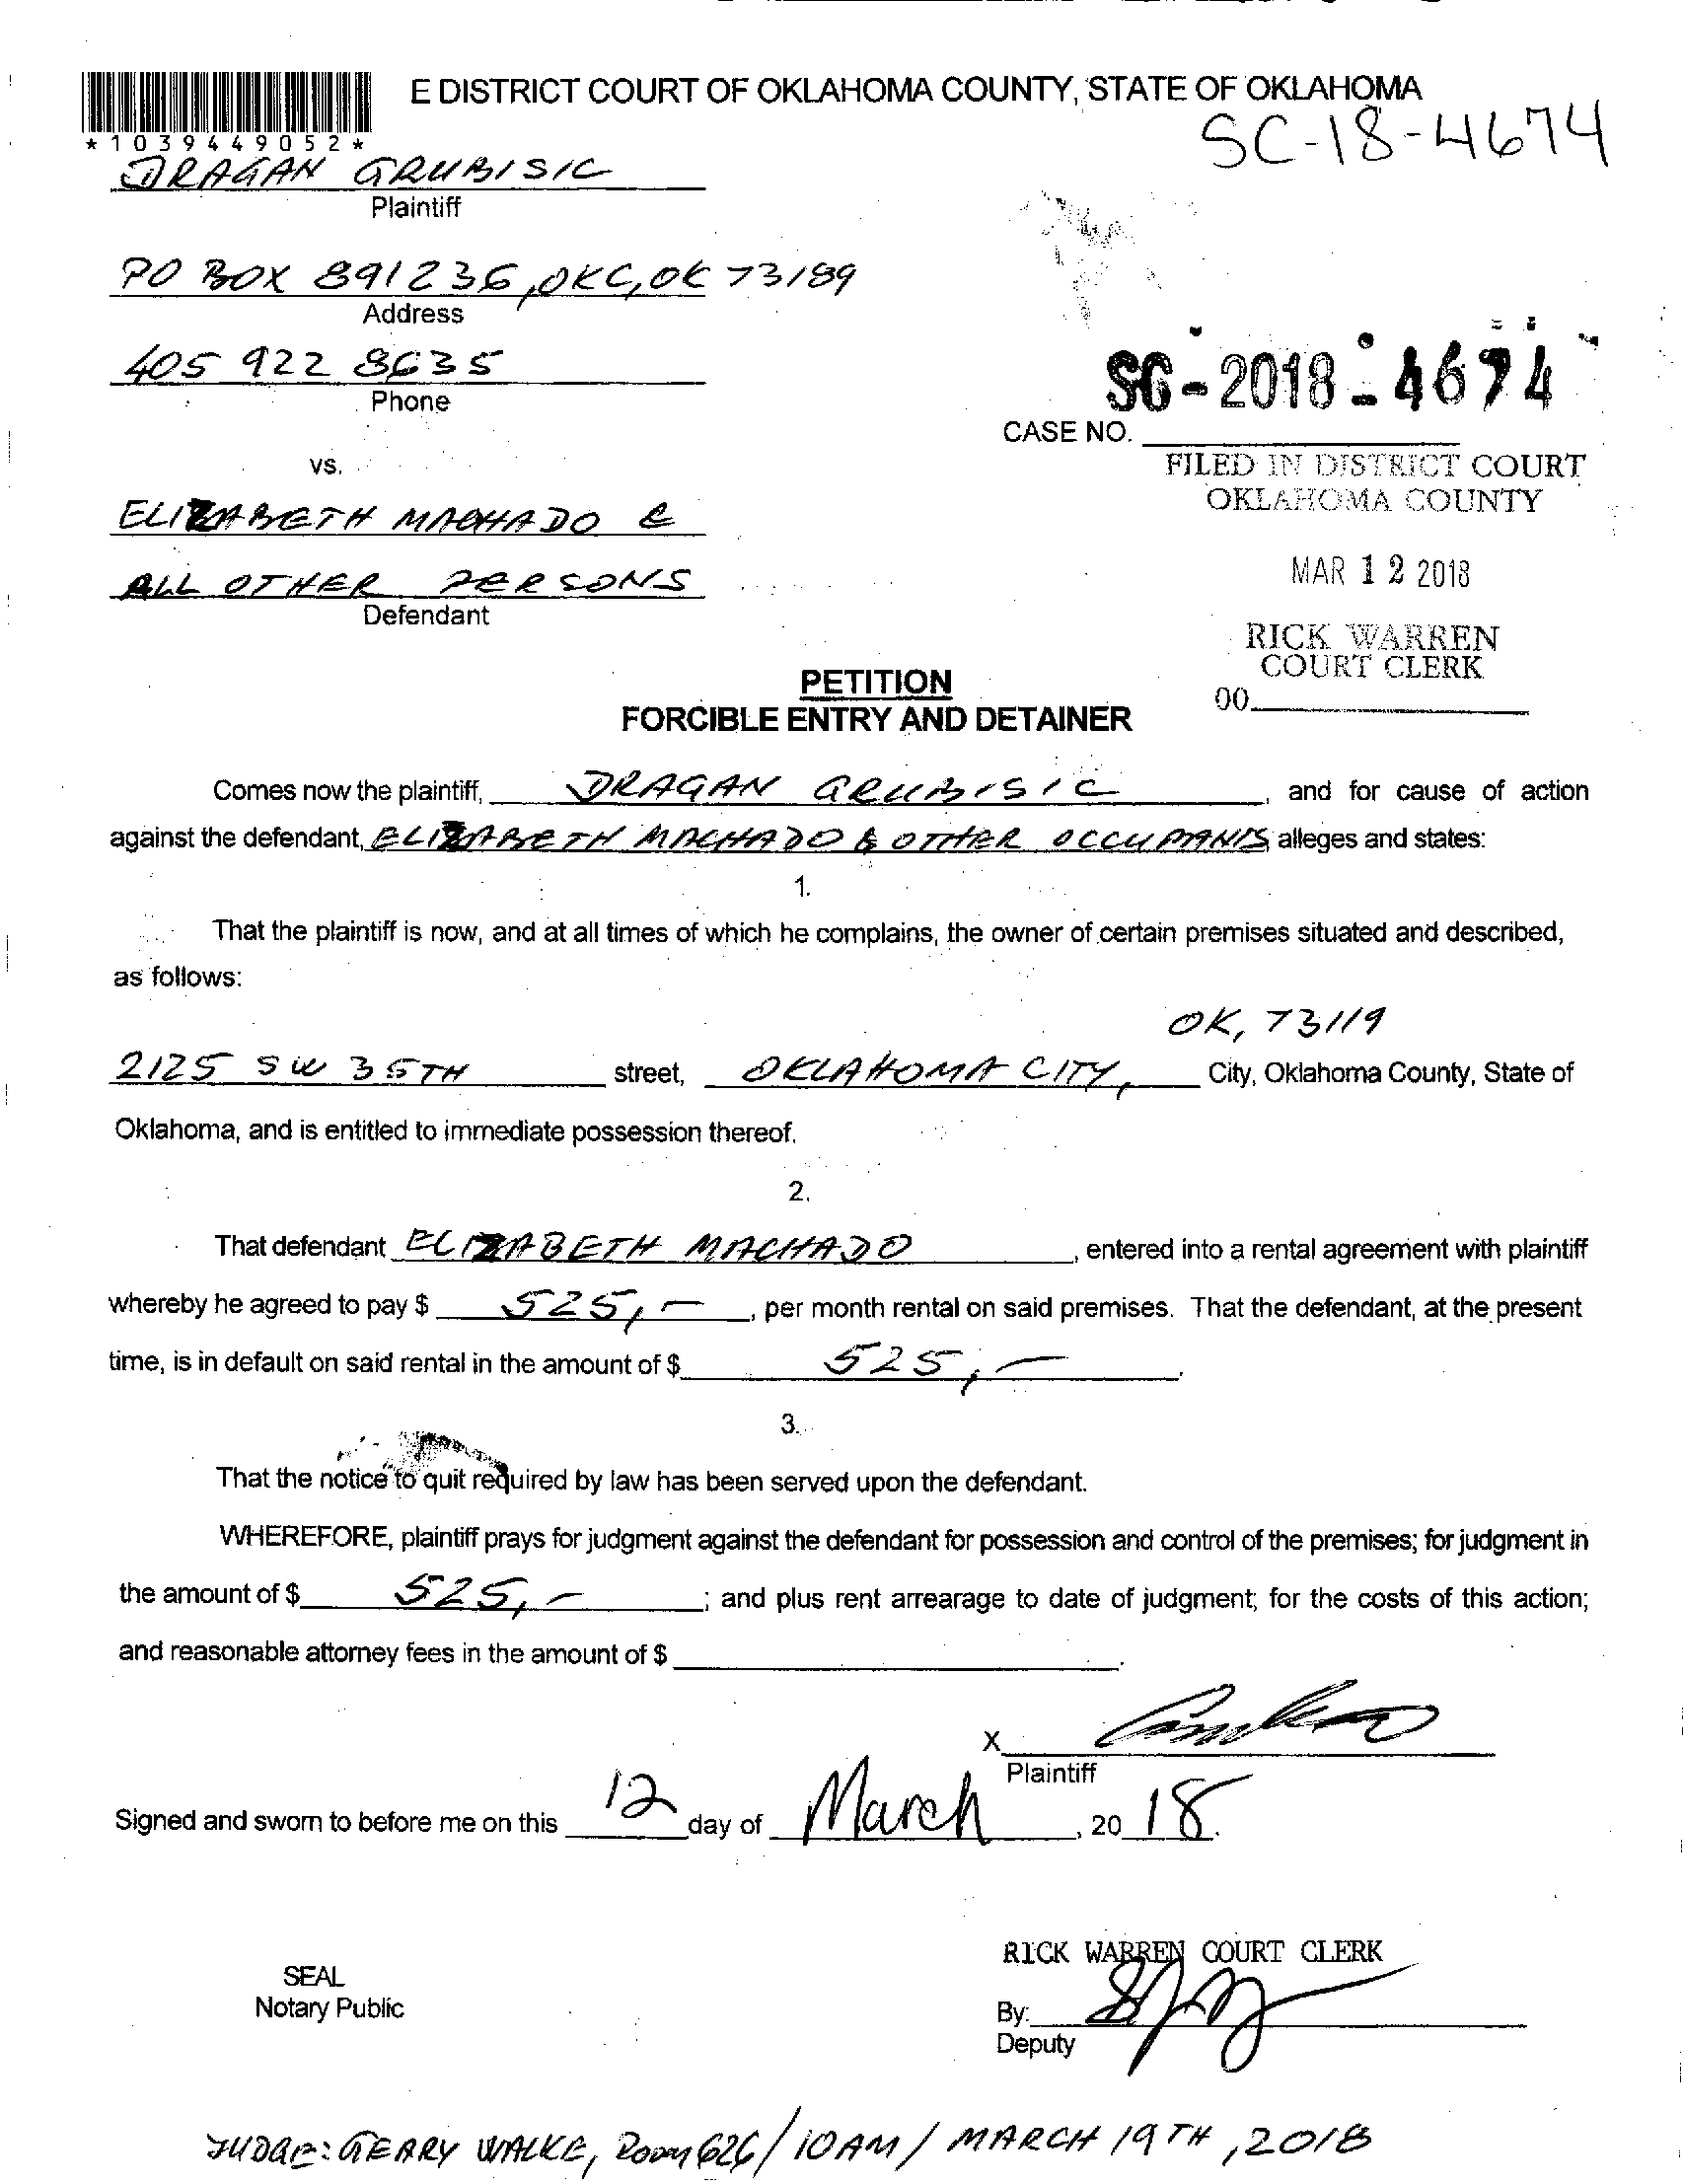 E DISTRICT COURT OF OKLAHOMA COUNTY, STATE OF OKLAHOMA
*1039449052*
SC-18-4674
DRAGAN GRUBISIC
Plaintiff
PO BOX 891236, OKC, OK 73189
Address
405 922 8635
Phone
SC-2018-4674
CASE NO.
vs.
FILED IN DISTRICT COURT
OKLAHOMA COUNTY
ELIZABETH MACHADO &
ALL OTHER PERSONS
Defendant
MAR 12 2018
RICK WARREN
COURT CLERK
00
PETITION
FORCIBLE ENTRY AND DETAINER
Comes now the plaintiff, DRAGAN GRUBISIC, and for cause of action
against the defendant, ELIZABETH MACHADO & OTHER OCCUPANTS alleges and states:
1.
That the plaintiff is now, and at all times of which he complains, the owner of certain premises situated and described,
as follows:
OK, 73119
2125 SW 35TH street, OKLAHOMA CITY, City, Oklahoma County, State of
Oklahoma, and is entitled to immediate possession thereof.
2.
That defendant ELIZABETH MACHADO, entered into a rental agreement with plaintiff
whereby he agreed to pay $ 525,-, per month rental on said premises. That the defendant, at the present
time, is in default on said rental in the amount of $ 525,-.
3.
That the notice to quit required by law has been served upon the defendant.
WHEREFORE, plaintiff prays for judgment against the defendant for possession and control of the premises; for judgment in
the amount of $ 525,-; and plus rent arrearage to date of judgment; for the costs of this action;
and reasonable attorney fees in the amount of $
X
Plaintiff
Signed and sworn to before me on this 12 day of March, 20 18.
RICK WARREN COURT CLERK
SEAL
Notary Public
By:
Deputy
JUDGE: GEARY WALKE, Room 626/10AM/ MARCH 19TH, 2018